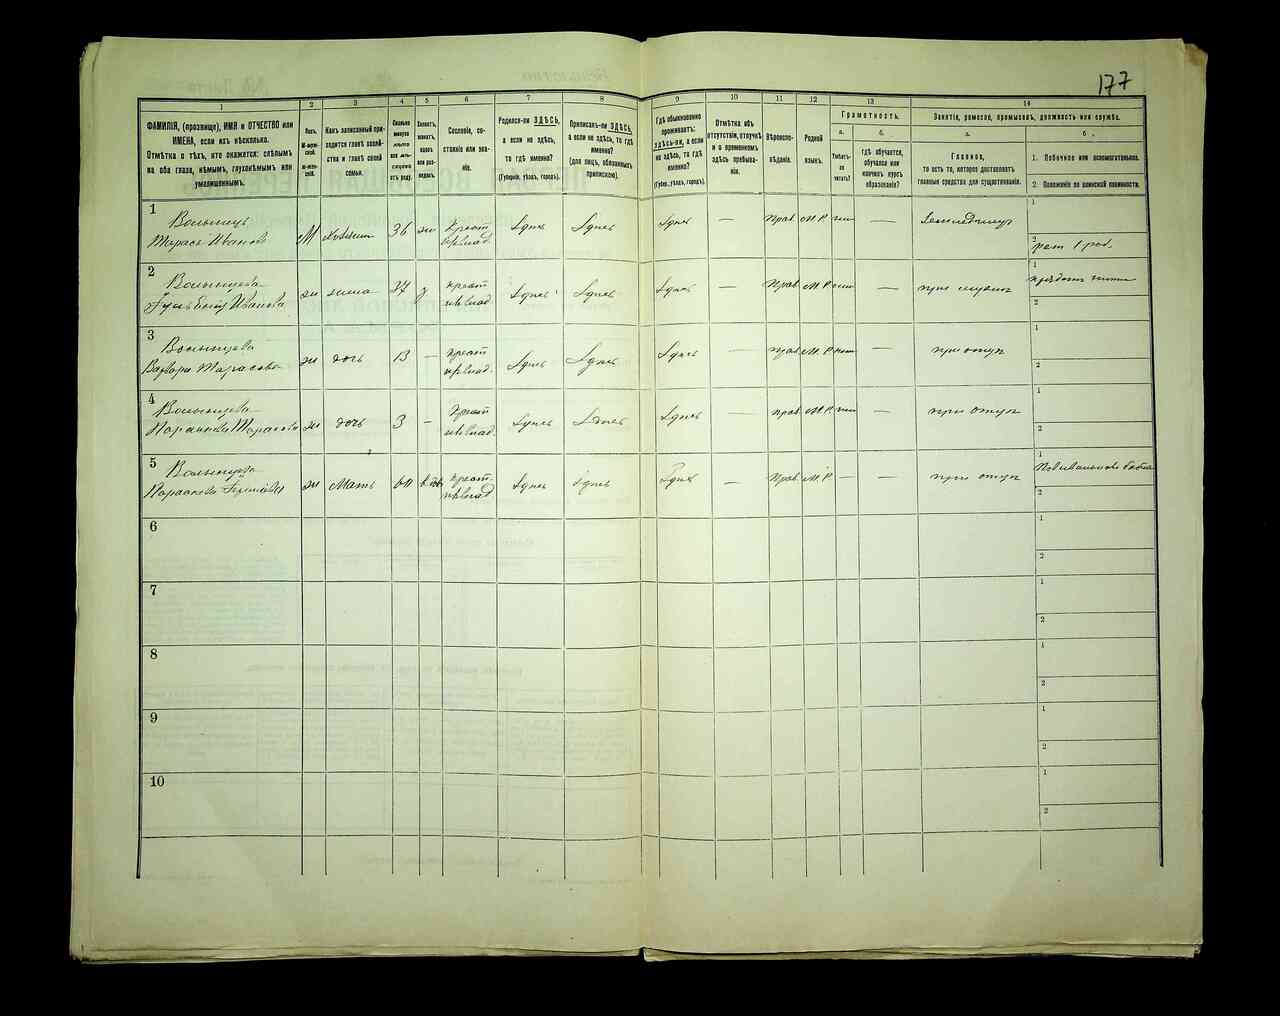 177
1
2
3
4
5
6
7
8
9
10
11
12
13
14
ФАМИЛІЯ, (прозвище), ИМЯ и ОТЧЕСТВО или
ИМЕНА, если ихъ нѣсколько.
Отмѣтка о тѣхъ, кто окажется: слѣпымъ
на оба глаза, нѣмымъ, глухонѣмымъ или
умалишеннымъ.
Полъ.
М-ужской.
Ж-енскій.
Какъ записанный при-
ходится главѣ хозяй-
ства и главѣ своей
семьи.
Сколько
минуло
лѣтъ
или мѣ-
сяцевъ
отъ роду.
Холостъ,
женатъ,
вдовъ
или раз-
веденъ.
Сословіе, со-
стояніе или зва-
ніе.
Родился-ли ЗДѢСЬ,
а если не здѣсь,
то гдѣ именно?
(Губернія, уѣздъ, городъ).
Приписанъ-ли ЗДѢСЬ,
а если не здѣсь, то гдѣ
именно?
(для лицъ, обязанныхъ
припискою).
Гдѣ обыкновенно
проживаетъ:
здѣсь-ли, а если
не здѣсь, то гдѣ
именно?
(Губерн., уѣздъ, городъ).
Отмѣтка объ
отсутствіи, отлучкѣ
и о временномъ
здѣсь пребыва-
ніи.
Вѣроиспо-
вѣданіе.
Родной
языкъ.
Грамотность.
а.
б.
Умѣетъ-
ли
читать?
гдѣ обучается,
обучался или
кончилъ курсъ
образованія?
Занятіе, ремесло, промыселъ, должность или служба.
а.
б.
Главное,
то есть то, которое доставляетъ
главныя средства для существованія.
1. Побочное или вспомогательное.
2. Положеніе по воинской повинности.
1
Волынецъ
Тарасъ Ивановъ
М
хозяинъ
36
ж
крест.
Здѣсь
Здѣсь
Здѣсь
—
Прав.
М.Р.
—
Земледѣлецъ
1
2
рат. 1 раз.
2
Волынцева
Иванова
ж
жена
37
з
крест.
Здѣсь
Здѣсь
Здѣсь
—
Прав.
М.Р.
—
при мужѣ
1
2
3
Волынцева
Варвара Тарасова
ж
дочь
13
—
крест.
Здѣсь
Здѣсь
Здѣсь
—
прав.
М.Р.
нѣт
—
при отцѣ
1
2
4
Волынцева
Параскева Тарасова
ж
дочь
3
—
крест.
Здѣсь
Здѣсь
Здѣсь
—
прав.
М.Р.
—
при отцѣ
1
2
5
Волынцева
Параскева
ж
Мать
60
вдов
крест.
Здѣсь
Здѣсь
Здѣсь
—
Прав.
М.Р.
—
—
1
Повивальная бабка
2
6
1
2
7
1
2
8
1
2
9
1
2
10
1
2